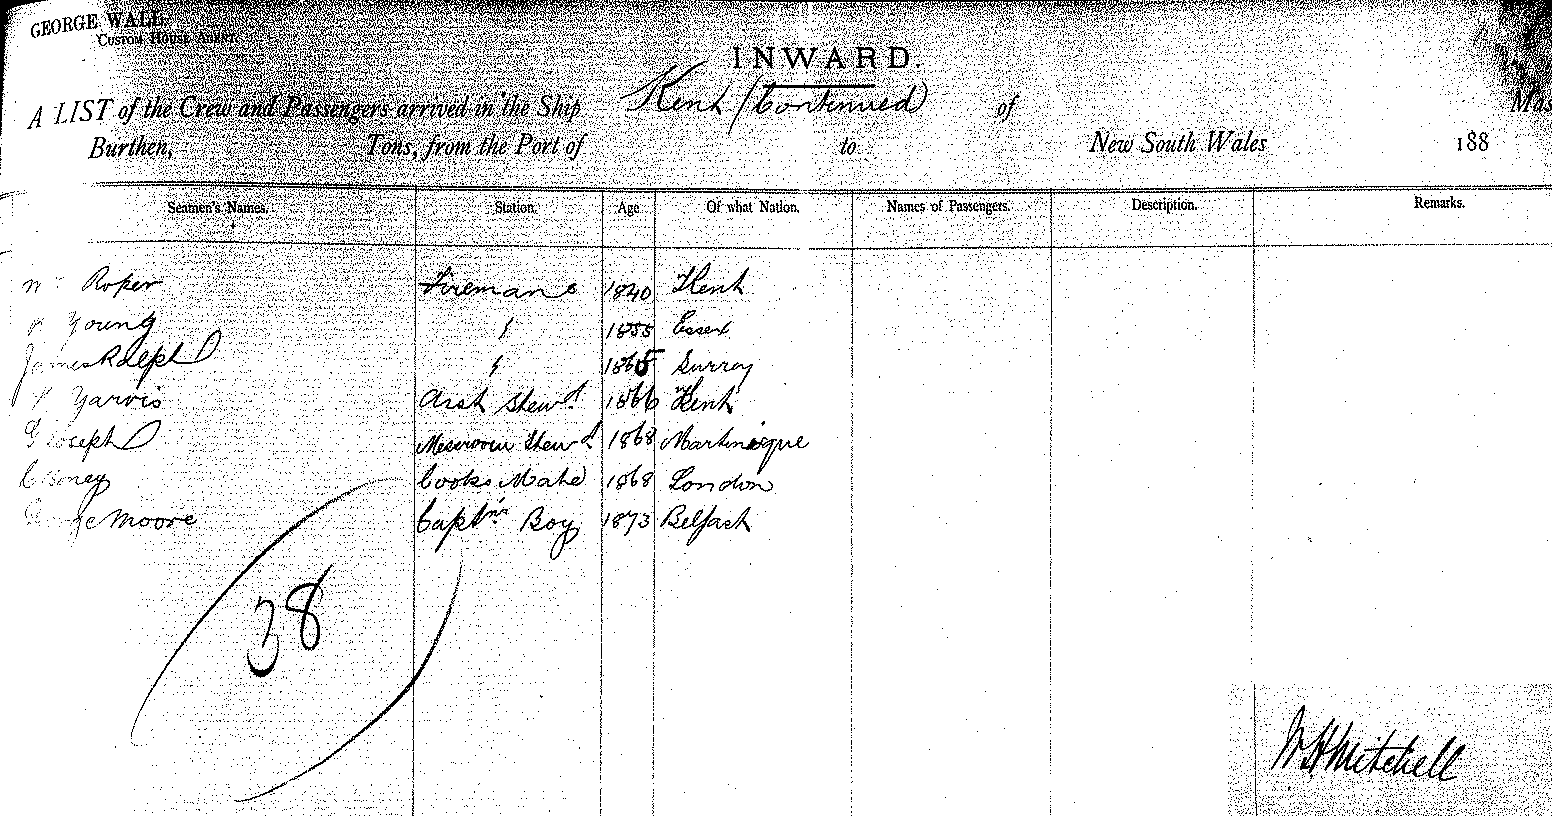 GEORGE WALL,
CUSTOM HOUSE AGENT,
INWARD.
A LIST of the Crew and Passengers arrived in the Ship Kent (Continued) of Mas
Burthen, Tons, from the Port of to New South Wales 188
Seamen's Names. Station. Age Of what Nation. Names of Passengers. Description. Remarks.
Wm Roper Fireman 1840 Kent
Young " 1855 Essex
James Ralph " 1865 Surrey
Yarvis Asst Stewd. 1866 Kent
G Joseph Messroom Stewd. 1868 Martinique
C Boney Cooks Mate 1868 London
George Moore Captns Boy 1873 Belfast
38
W H Mitchell